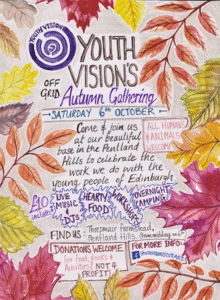 YOUTH VISION
YOUTH
VISION'S
OFF
GRID
Autumn Gathering
SATURDAY 6TH OCTOBER
Come & join us
at our beautiful
base in the Pentland
Hills to celebrate the
work we do with the
young people of Edinburgh
ALL HUMANS
& ANIMALS
WELCOME
£10
includes
LIVE
MUSIC
& DJs
HEARTY
FOOD
WORKSHOPS
OVERNIGHT
CAMPING
FIND US: Threipmuir Farmstead,
Pentland Hills. From midday on
DONATIONS WELCOME
for Food, Drinks &
Activities! NOT 4
PROFIT!
FOR MORE INFO:
f